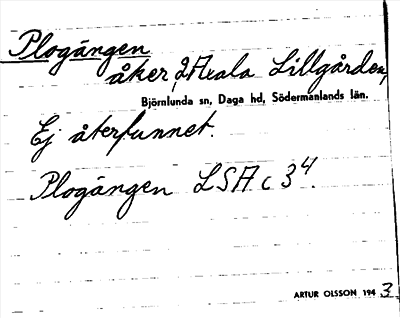 Plogängen
åker, Lillgården,
Björnlunda sn, Daga hd, Södermanlands län.
Ej återfunnet.
Plogängen LSA c 34.
ARTUR OLSSON 1943